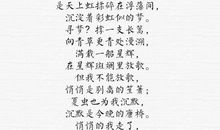 是天上虹揉碎在浮藻间，
沉淀着彩虹似的梦。
寻梦？撑一支长篙，
向青草更青处漫溯，
满载一船星辉，
在星辉斑斓里放歌。
但我不能放歌，
悄悄是别离的笙箫；
夏虫也为我沉默，
沉默是今晚的康桥。
悄悄的我走了，